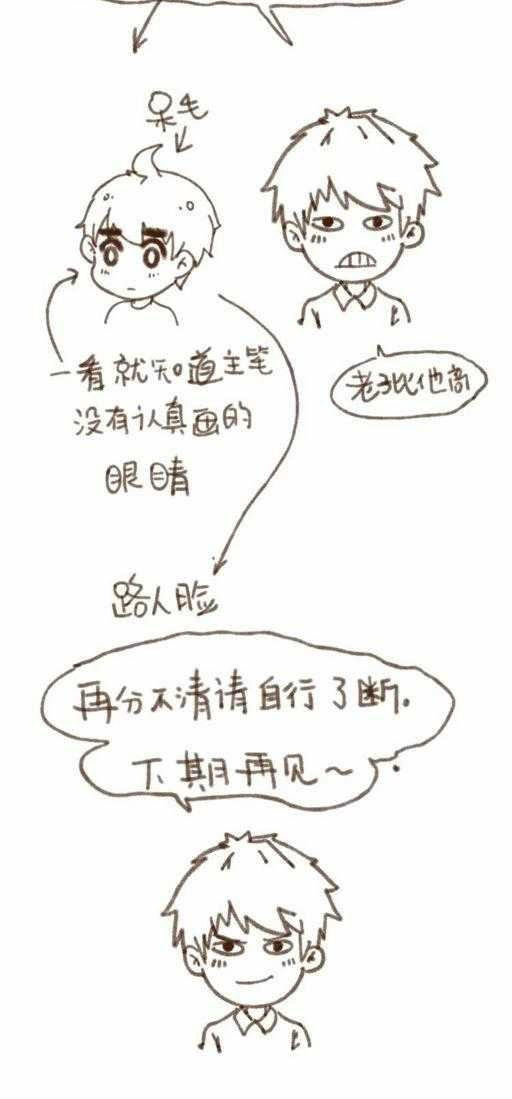 呆毛
一看就知道主笔
没有认真画的
眼睛
老子比他高
路人脸
再分不清请自行了断.
下期再见~